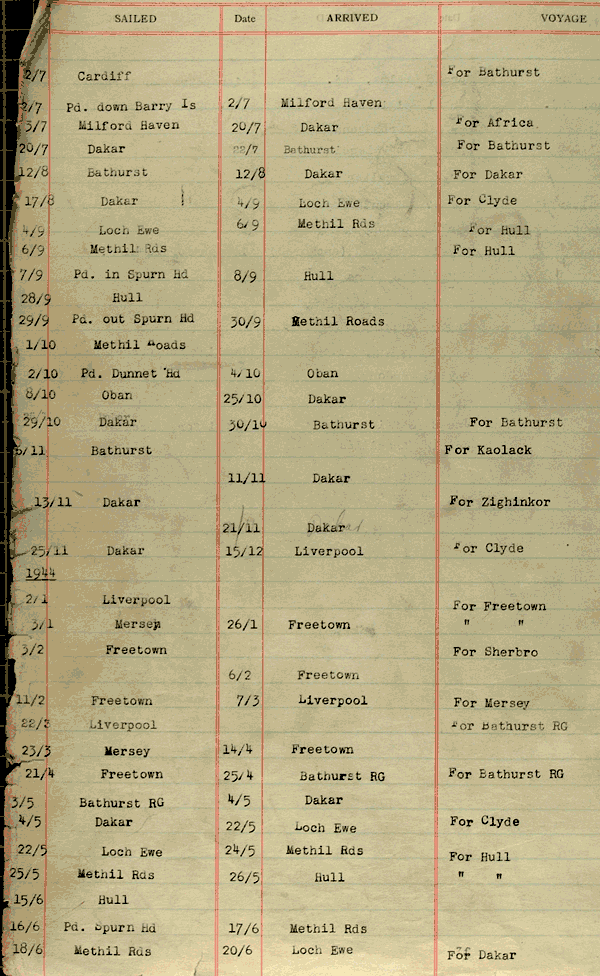 SAILED Date ARRIVED VOYAGE
2/7 Cardiff For Bathurst
2/7 Pd. down Barry Is 2/7 Milford Haven
3/7 Milford Haven 20/7 Dakar For Africa
20/7 Dakar 22/7 Bathurst For Bathurst
12/8 Bathurst 12/8 Dakar For Dakar
17/8 Dakar 4/9 Loch Ewe For Clyde
4/9 Loch Ewe 6/9 Methil Rds For Hull
6/9 Methil Rds For Hull
7/9 Pd. in Spurn Hd 8/9 Hull
28/9 Hull
29/9 Pd. out Spurn Hd 30/9 Methil Roads
1/10 Methil Roads
2/10 Pd. Dunnet Hd 4/10 Oban
8/10 Oban 25/10 Dakar
29/10 Dakar 30/10 Bathurst For Bathurst
/11 Bathurst For Kaolack
11/11 Dakar
13/11 Dakar For Zighinkor
21/11 Dakar
25/11 Dakar 15/12 Liverpool For Clyde
1944
2/1 Liverpool For Freetown
3/1 Mersey 26/1 Freetown " "
3/2 Freetown For Sherbro
6/2 Freetown
11/2 Freetown 7/3 Liverpool For Mersey
22/3 Liverpool For Bathurst RG
23/3 Mersey 14/4 Freetown
21/4 Freetown 25/4 Bathurst RG For Bathurst RG
3/5 Bathurst RG 4/5 Dakar
4/5 Dakar 22/5 Loch Ewe For Clyde
22/5 Loch Ewe 24/5 Methil Rds For Hull
25/5 Methil Rds 26/5 Hull " "
15/6 Hull
16/6 Pd. Spurn Hd 17/6 Methil Rds
18/6 Methil Rds 20/6 Loch Ewe For Dakar